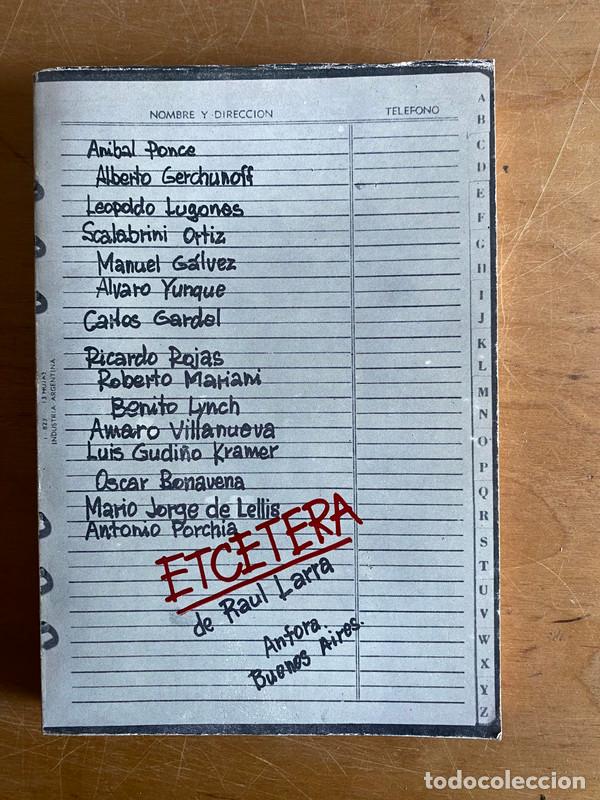 NOMBRE Y DIRECCION TELEFONO
Anibal Ponce
Alberto Gerchunoff
Leopoldo Lugones
Scalabrini Ortiz
Manuel Gálvez
Alvaro Yunque
Carlos Gardel
Ricardo Rojas
Roberto Mariani
Benito Lynch
Amaro Villanueva
Luis Gudiño Kramer
Oscar Bonavena
Mario Jorge de Lellis
Antonio Porchia
ETCETERA
de Raul Larra
Anfora.
Buenos Aires.
INDUSTRIA ARGENTINA
A
B
C
D
E
F
G
H
I
J
K
L
M
N
O
P
Q
R
S
T
U
V
W
X
Y
Z
todocoleccion.net